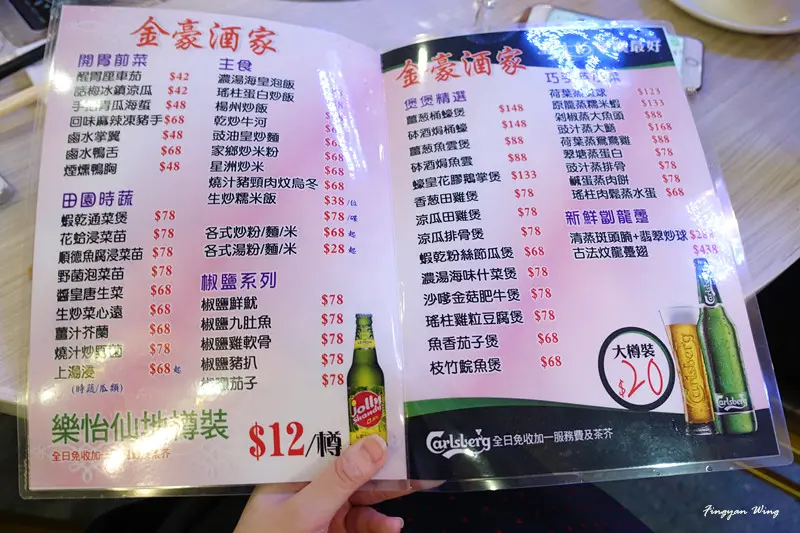 金豪酒家
開胃前菜
醒胃車厘茄 $42
話梅冰鎮涼瓜 $42
手拍青瓜海蜇 $48
回味麻辣凍豬手 $68
鹵水掌翼 $48
鹵水鴨舌 $68
煙燻鴨胸 $48
田園時蔬
蝦乾通菜煲 $78
花蛤浸菜苗 $78
順德魚腐浸菜苗 $78
野菌泡菜苗 $78
醬皇唐生菜 $68
生炒菜心遠 $68
薑汁芥蘭 $68
燒汁炒野菌 $78
上湯浸 $68起
(時蔬/瓜類)
主食
濃湯海皇泡飯 $78
瑤柱蛋白炒飯
楊州炒飯
乾炒牛河
豉油皇炒麵 $68
家鄉炒米粉 $68
星洲炒米 $68
燒汁豬頸肉炆烏冬 $68
生炒糯米飯 $38/位
$78/碟
各式炒粉/麵/米 $68起
各式湯粉/麵/米 $28起
椒鹽系列
椒鹽鮮魷 $78
椒鹽九肚魚 $78
椒鹽雞軟骨 $78
椒鹽豬扒 $78
椒鹽茄子 $78
樂怡仙地樽裝
$12/樽
全日免收加一 茶芥
Jolly
Shandy
金豪酒家
最好
煲煲精選
薑葱焗蠔煲 $148
砵酒焗蠔煲 $148
薑葱魚雲煲 $88
砵酒焗魚雲 $88
蠔皇花膠鵝掌煲 $133
香葱田雞煲 $78
涼瓜田雞煲 $78
涼瓜排骨煲 $78
蝦乾粉絲節瓜煲 $68
濃湯海味什菜煲 $78
沙嗲金菇肥牛煲 $78
瑤柱雞粒豆腐煲 $78
魚香茄子煲 $68
枝竹鯇魚煲 $68
荷葉蒸 $123
原籠蒸糯米蝦 $133
剁椒蒸大魚頭 $88
豉汁蒸大鱔 $168
荷葉蒸鴛鴦雞 $88
翠塘蒸蛋白 $78
豉汁蒸排骨 $78
鹹蛋蒸肉餅 $78
瑤柱肉鬆蒸水蛋 $68
新鮮劏龍躉
清蒸斑頭腩+翡翠炒球
古法炆龍躉翅 $438
大樽裝
$20
Carlsberg
Carlsberg
Carlsberg 全日免收加一服務費及茶芥
Fingyan Wing